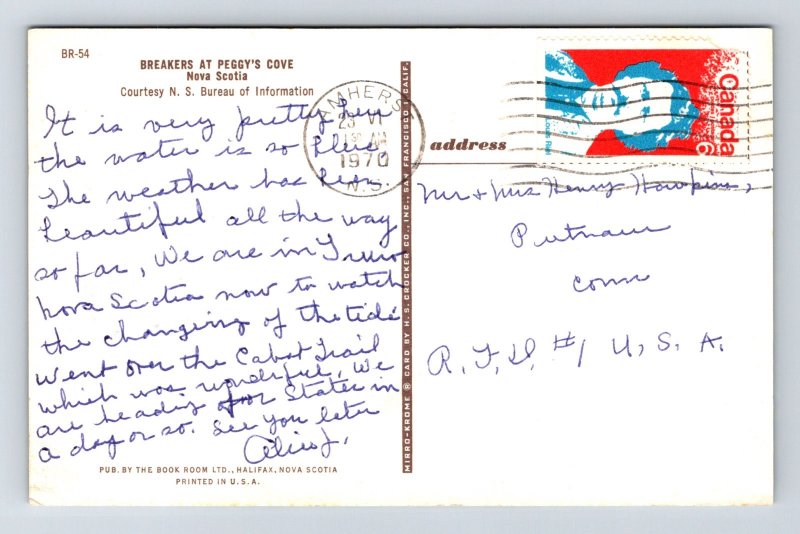 BR-54
BREAKERS AT PEGGY'S COVE
Nova Scotia
Courtesy N. S. Bureau of Information
It is very pretty here
the water is so blue
The weather has been
beautiful all the way
so far, We are in Truro
Nova Scotia now to watch
the changing of the tide
went over the Cabot Trail
which was wonderful, We
are heading for States in
a day or so. See you later
Alice J.
PUB. BY THE BOOK ROOM LTD., HALIFAX, NOVA SCOTIA
PRINTED IN U.S.A.
MIRRO-KROME ® CARD BY H. S. CROCKER CO., INC., SAN FRANCISCO, CALIF.
AMHERST
23 VI
AM
1970
N.S.
Canada
6
address
Mr + Mrs Henry Hawkins,
Putnam
Conn
R. F. D. #1 U, S. A.